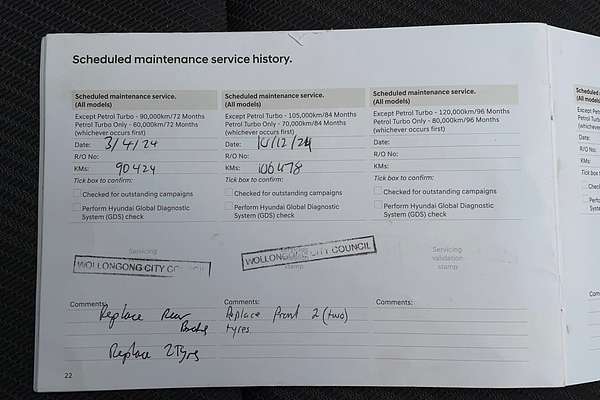 Scheduled maintenance service history.
Scheduled maintenance service.
(All models)
Except Petrol Turbo - 90,000km/72 Months
Petrol Turbo Only - 60,000km/72 Months
(whichever occurs first)
Date: 3/4/24
R/O No:
KMs: 90424
Tick box to confirm:
Checked for outstanding campaigns
Perform Hyundai Global Diagnostic
System (GDS) check
Servicing
WOLLONGONG CITY COUNCIL
Comments:
Replace Rear
Replace 2 Tyres
22
Scheduled maintenance service.
(All models)
Except Petrol Turbo - 105,000km/84 Months
Petrol Turbo Only - 70,000km/84 Months
(whichever occurs first)
Date: /12/24
R/O No:
KMs: 106478
Tick box to confirm:
Checked for outstanding campaigns
Perform Hyundai Global Diagnostic
System (GDS) check
WOLLONGONG CITY COUNCIL
stamp
Comments:
Replace front 2 (two)
tyres
Scheduled maintenance service.
(All models)
Except Petrol Turbo - 120,000km/96 Months
Petrol Turbo Only - 80,000km/96 Months
(whichever occurs first)
Date:
R/O No:
KMs:
Tick box to confirm:
Checked for outstanding campaigns
Perform Hyundai Global Diagnostic
System (GDS) check
Servicing
validation
stamp
Comments: